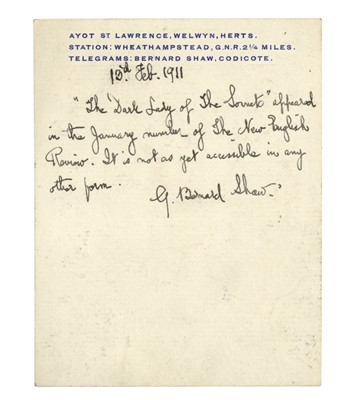 AYOT ST LAWRENCE, WELWYN, HERTS.
STATION: WHEATHAMPSTEAD, G.N.R. 2¼ MILES.
TELEGRAMS: BERNARD SHAW, CODICOTE.
Feb. 1911
"The Dark Lady of The Sonnets" appeared
in the January number of The New English
Review. It is not as yet accessible in any
other form.
G. Bernard Shaw